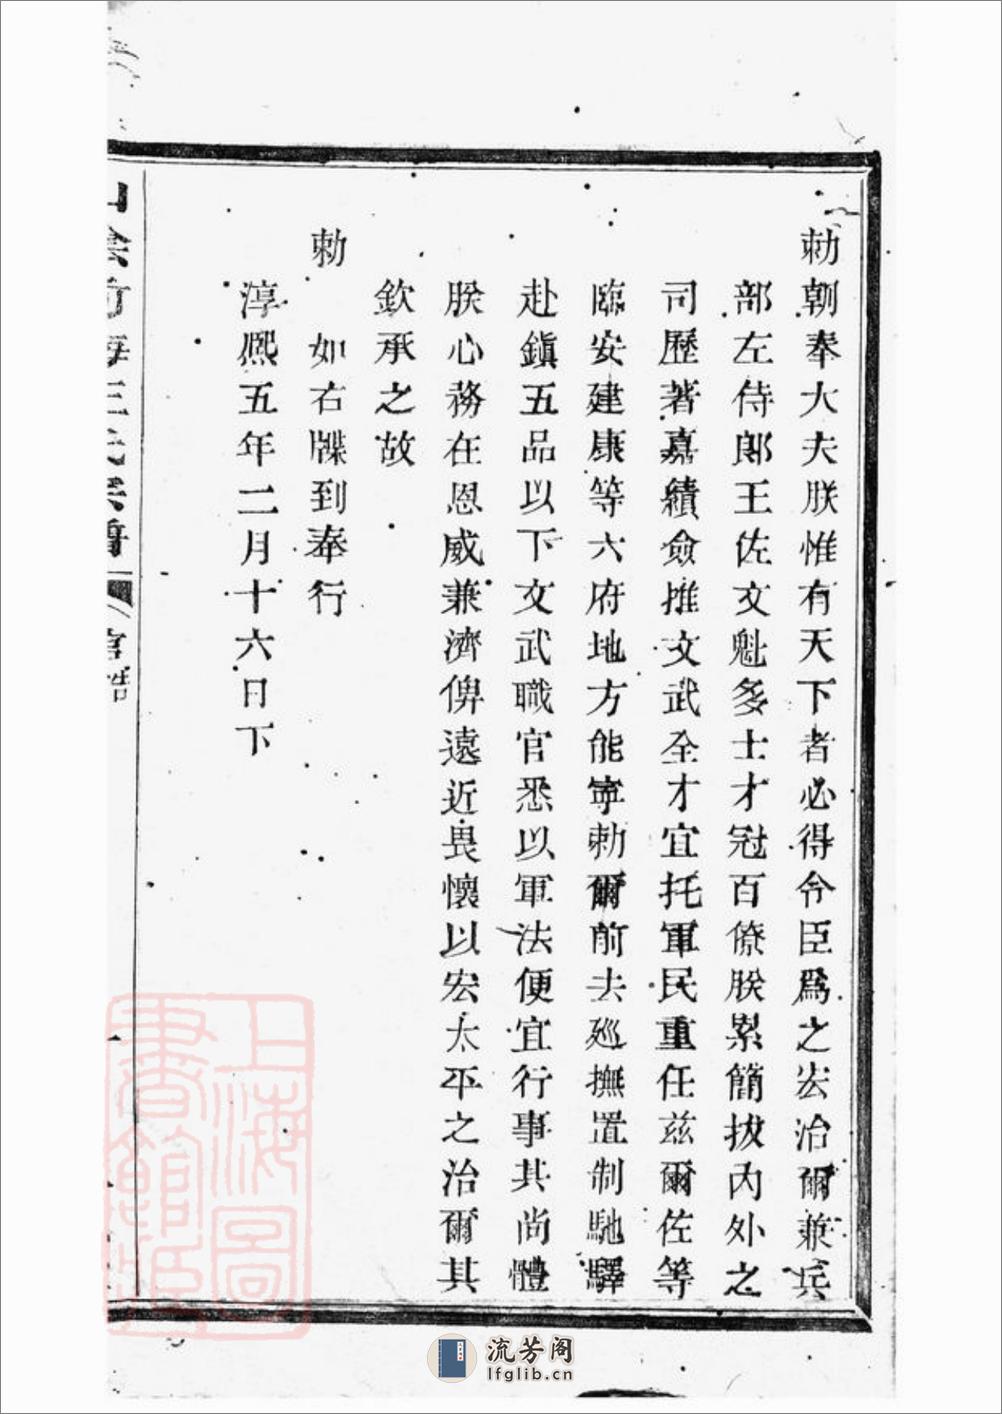 勅朝奉大夫朕惟有天下者必得令臣爲之宏治爾兼兵
部左侍郎王佐文魁多士才冠百僚朕累簡拔內外之
司歷著嘉績僉推文武全才宜托軍民重任茲爾佐等
臨安建康等六府地方能寧勅爾前去廵撫置制馳驛
赴鎭五品以下文武職官悉以軍法便宜行事其尚體
朕心務在恩威兼濟俾遠近畏懷以宏太平之治爾其
欽承之故
勅　如右牒到奉行
淳熙五年二月十六日下
山陰前海王氏宗譜
官誥
上海圖書館藏
流芳阁
lfglib.cn